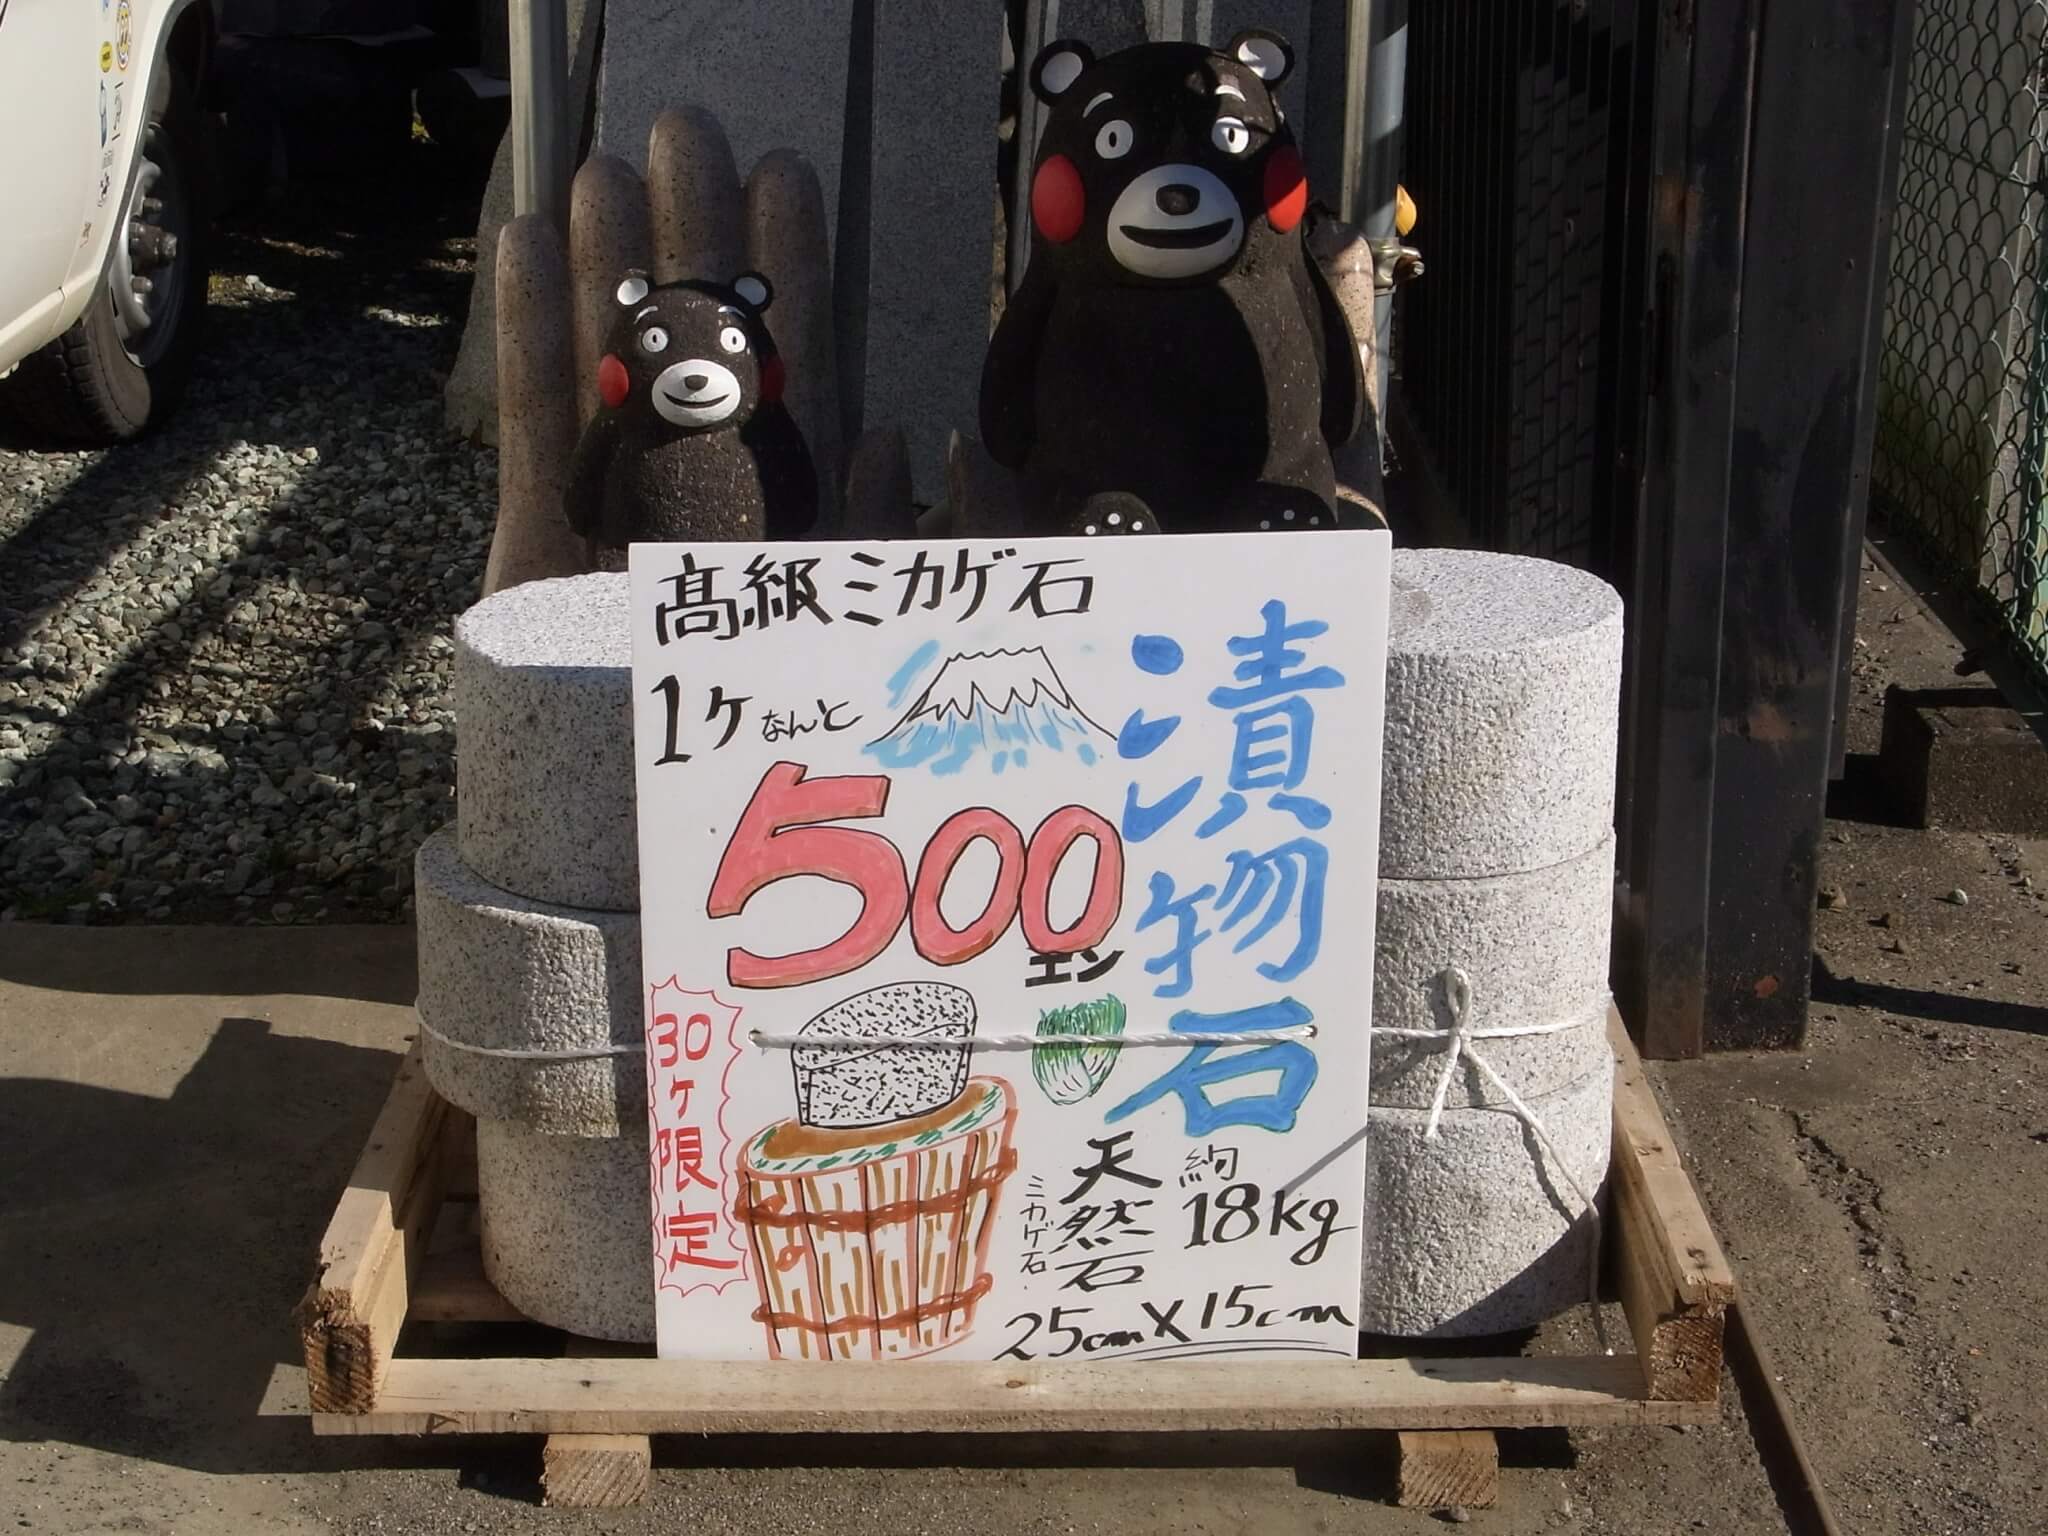 高級ミカゲ石
1ヶなんと
500
エン
漬物石
30ヶ限定
天然石
ミカゲ石
約
18kg
25cm×15cm